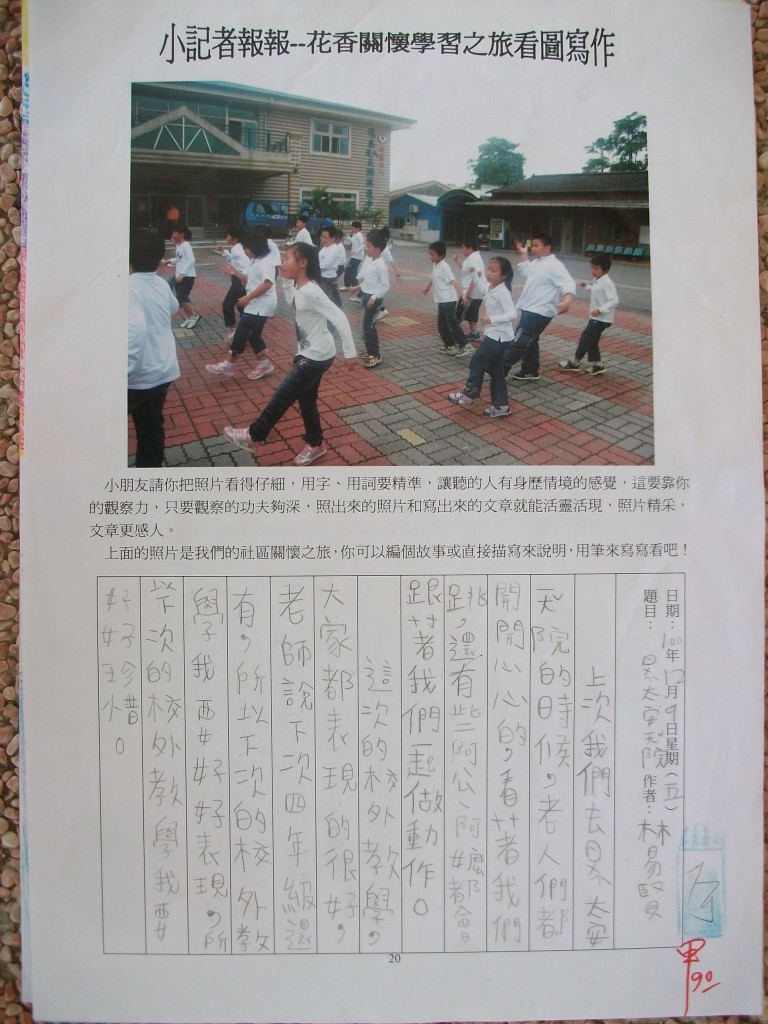 小記者報報--花香關懷學習之旅看圖寫作
小朋友請你把照片看得仔細，用字、用詞要精準，讓聽的人有身歷情境的感覺，這要靠你
的觀察力，只要觀察的功夫夠深，照出來的照片和寫出來的文章就能活靈活現，照片精采，
文章更感人。
上面的照片是我們的社區關懷之旅，你可以編個故事或直接描寫來說明，用筆來寫寫看吧！
日期：100年12月9日星期（五）
題目：恩太安天院 作者：林易賢
上次我們去恩太安
天院的時候，老人們都
開開心心的，看著我們
跳，還有些阿公、阿嬤都會
跟著我們一起做動作。
這次的校外教學，
大家都表現的很好，
老師說下次四年級還
有，所以下次的校外教
學我要好好表現，所
以下次的校外教學我要
好好珍惜。
甲
90
20